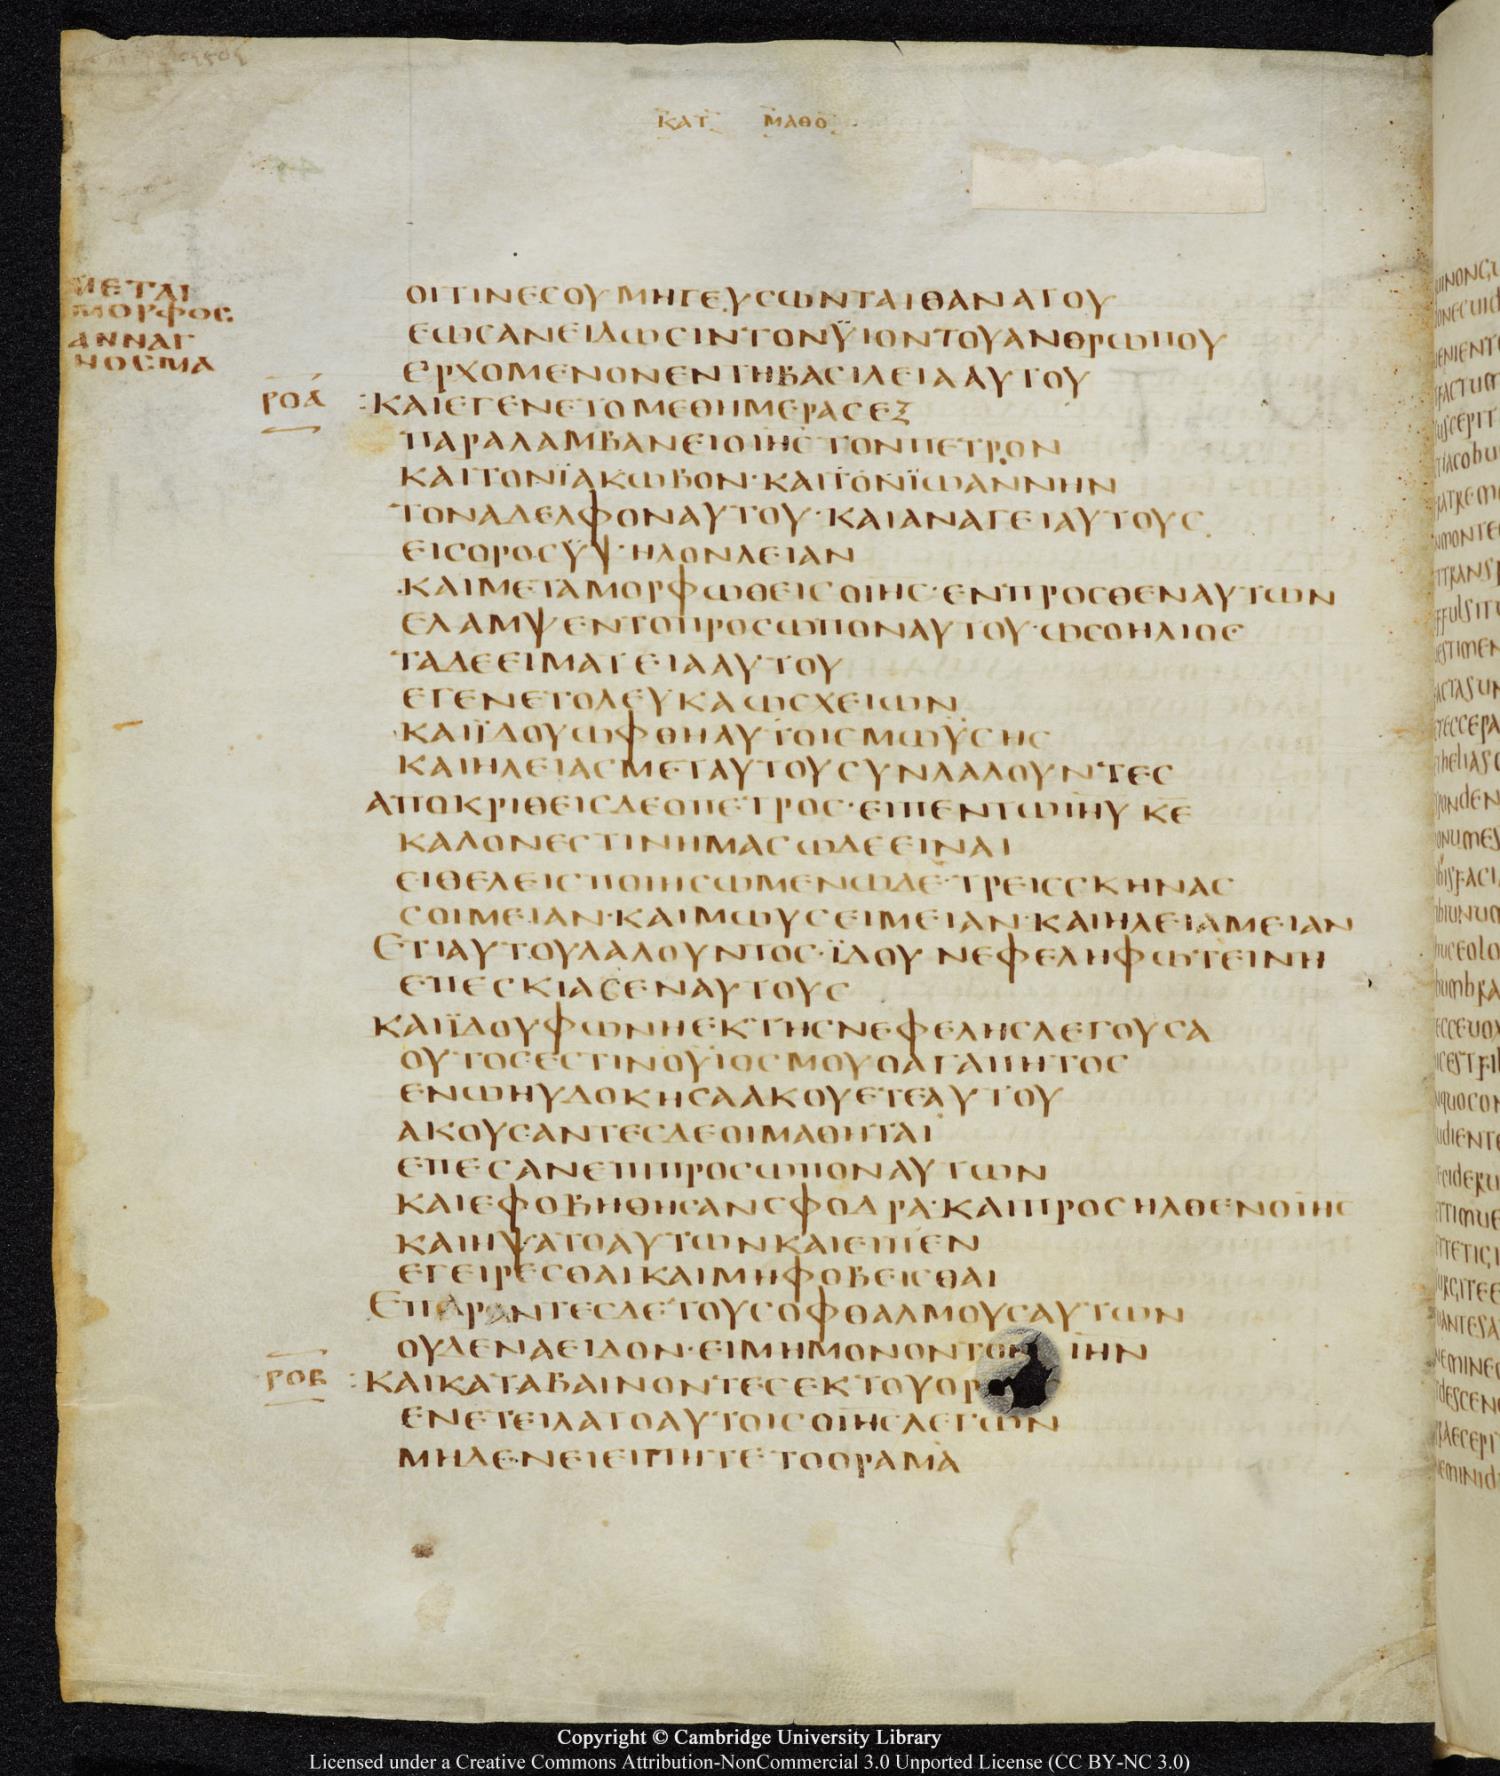 ΚΑΤ ΜΑΘΘ
ΜΕΤΑΙ
ΜΟΡΦΟΣ
ΑΝΝΑΓ
ΝΟΣΜΑ
ΟΙΤΙΝΕϹΟΥΜΗΓΕΥϹΩΝΤΑΙΘΑΝΑΤΟΥ
ΕΩϹΑΝΕΙΔΩϹΙΝΤΟΝΫΙΟΝΤΟΥΑΝΘΡΩΠΟΥ
ΕΡΧΟΜΕΝΟΝΕΝΤΗΒΑϹΙΛΕΙΑΑΥΤΟΥ
ΡΟΑ :ΚΑΙΕΓΕΝΕΤΟΜΕΘΗΜΕΡΑϹΕΞ
ΠΑΡΑΛΑΜΒΑΝΕΙΟΙΗϹΤΟΝΠΕΤΡΟΝ
ΚΑΙΤΟΝΪΑΚΩΒΟΝ·ΚΑΙΤΟΝΪΩΑΝΝΗΝ
ΤΟΝΑΔΕΛΦΟΝΑΥΤΟΥ·ΚΑΙΑΝΑΓΕΙΑΥΤΟΥϹ
ΕΙϹΟΡΟϹΫΨΗΛΟΝΛΕΙΑΝ
ΚΑΙΜΕΤΑΜΟΡΦΩΘΕΙϹΟΙΗϹ·ΕΝΠΡΟϹΘΕΝΑΥΤΩΝ
ΕΛΑΜΨΕΝΤΟΠΡΟϹΩΠΟΝΑΥΤΟΥ·ΩϹΟΗΛΙΟϹ
ΤΑΔΕΕΙΜΑΤΕΙΑΑΥΤΟΥ
ΕΓΕΝΕΤΟΛΕΥΚΑΩϹΧΕΙΩΝ
ΚΑΙΪΔΟΥΩΦΘΗΑΥΤΟΙϹΜΩΫϹΗϹ
ΚΑΙΗΛΕΙΑϹΜΕΤΑΥΤΟΥϹΥΝΛΑΛΟΥΝΤΕϹ
ΑΠΟΚΡΙΘΕΙϹΔΕΟΠΕΤΡΟϹ·ΕΙΠΕΝΤΩΙΗΥ ΚΕ
ΚΑΛΟΝΕϹΤΙΝΗΜΑϹΩΔΕΕΙΝΑΙ
ΕΙΘΕΛΕΙϹΠΟΙΗϹΩΜΕΝΩΔΕ·ΤΡΕΙϹϹΚΗΝΑϹ
ϹΟΙΜΕΙΑΝ·ΚΑΙΜΩΥϹΕΙΜΕΙΑΝ·ΚΑΙΗΛΕΙΑΜΕΙΑΝ
ΕΤΙΑΥΤΟΥΛΑΛΟΥΝΤΟϹ·ΪΔΟΥ ΝΕΦΕΛΗΦΩΤΕΙΝΗ
ΕΠΕϹΚΙΑϹΕΝΑΥΤΟΥϹ
ΚΑΙΪΔΟΥΦΩΝΗΕΚΤΗϹΝΕΦΕΛΗϹΛΕΓΟΥϹΑ
ΟΥΤΟϹΕϹΤΙΝΟΥΪΟϹΜΟΥΟΑΓΑΠΗΤΟϹ
ΕΝΩΗΥΔΟΚΗϹΑΑΚΟΥΕΤΕΑΥΤΟΥ
ΑΚΟΥϹΑΝΤΕϹΔΕΟΙΜΑΘΗΤΑΙ
ΕΠΕϹΑΝΕΠΙΠΡΟϹΩΠΟΝΑΥΤΩΝ
ΚΑΙΕΦΟΒΗΘΗϹΑΝϹΦΟΔΡΑ·ΚΑΙΠΡΟϹΗΛΘΕΝΟΙΗϹ
ΚΑΙΗΨΑΤΟΑΥΤΩΝΚΑΙΕΙΠΕΝ
ΕΓΕΙΡΕϹΘΑΙΚΑΙΜΗΦΟΒΕΙϹΘΑΙ
ΕΠΑΡΑΝΤΕϹΔΕΤΟΥϹΟΦΘΑΛΜΟΥϹΑΥΤΩΝ
ΟΥΔΕΝΑΕΙΔΟΝ·ΕΙΜΗΜΟΝΟΝΤΟΝ ΙΗΝ
ΡΟΒ :ΚΑΙΚΑΤΑΒΑΙΝΟΝΤΕϹΕΚΤΟΥΟΡ
ΕΝΕΤΕΙΛΑΤΟΑΥΤΟΙϹΟΙΗϹΛΕΓΩΝ
ΜΗΔΕΝΕΙΕΙΠΗΤΕΤΟΟΡΑΜΑ
Copyright © Cambridge University Library
Licensed under a Creative Commons Attribution-NonCommercial 3.0 Unported License (CC BY-NC 3.0)